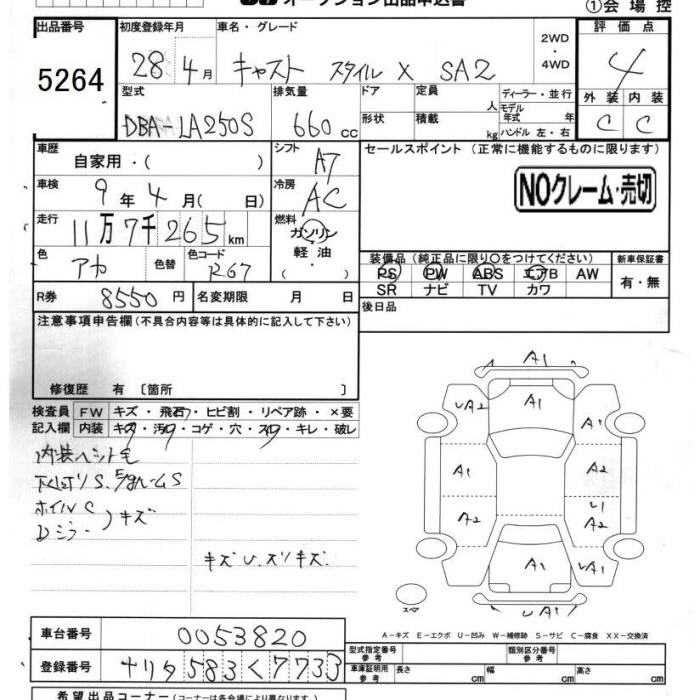 オークション出品申込書
①会場控
出品番号 初度登録年月 車名・グレード 2WD・4WD 評価点
5264 28 4月 キャスト スタイル X SA2 4
型式 排気量 ドア 定員 人 ディーラー・並行 外装 内装
DBA-LA250S 660cc 形状 積載 kg モデル年式 年 ハンドル 左・右 C C
車歴 自家用・( ) シフト A7 セールスポイント (正常に機能するものに限ります)
車検 9年4月( 日) 冷房 AC
NOクレーム・売切
走行 11万7千265km 燃料 ガソリン 軽油・
色 アカ 色替 色コード R67
装備品(純正品に限り〇をつけてください) 新車保証書
PS PW ABS エアB AW 有・無
SR ナビ TV カワ
R券 8550円 名変期限 月 日
後日品
注意事項申告欄(不具合内容等は具体的に記入して下さい)
修復歴 有〔箇所 〕
検査員 FW キズ・飛石・ヒビ割・リペア跡・×要
記入欄 内装 キズ・汚・コゲ・穴・スレ・キレ・破レ
内装ヘット毛
ホイルC
Dミラー )キズ
キズU.ズリキズ
A1
UA2 A1 A1
A1 A2
A2 U1 A2
A1 UA1
UA1
スペア
A-キズ E-エクボ U-凹み W-補修跡 S-サビ C-腐食 XX-交換済
車台番号 0053820
型式指定番号 参考 類別区分番号 参考
登録番号 ナリタ 583 く 7733
車庫証明用 参考 長さ cm 幅 cm 高さ cm
希望出品コーナー(コーナーは各会場により異なります)